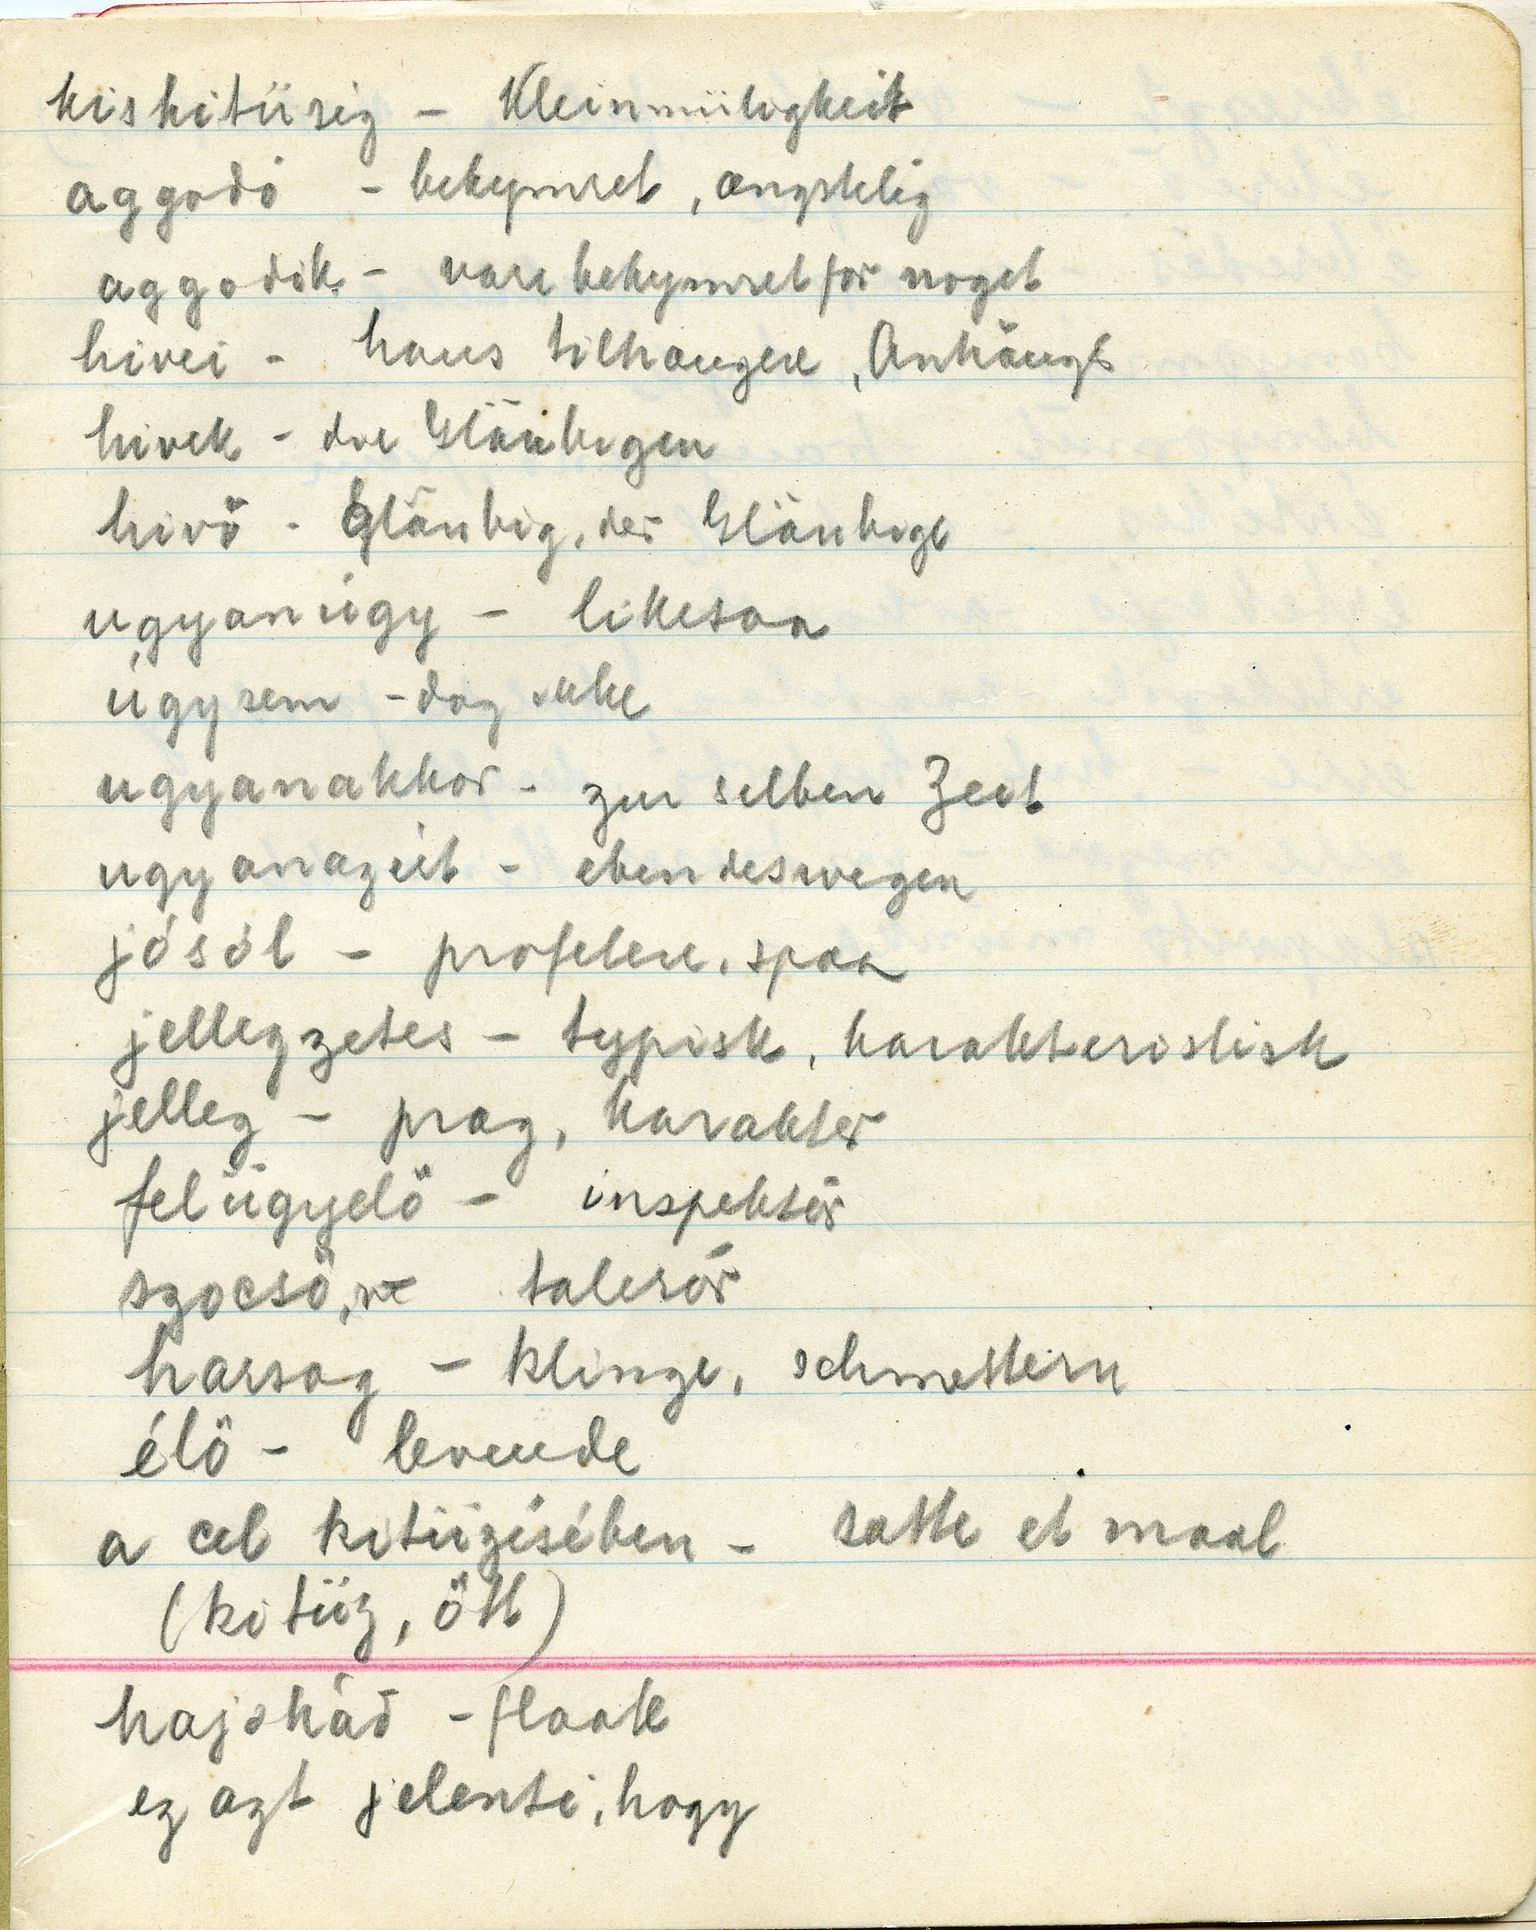 kishitüség - Kleinmütigkeit
aggodó - bekymret, ængstelig
aggodik - være bekymret for noget
hivei - hans tilhængere, Anhänger
hivek - die Gläubigen
hivö - Gläubig, der Gläubige
ugyanúgy - likesaa
úgysem - dog ikke
ugyanakkor - zur selben Zeit
ugyanazért - ebendeswegen
jósol - profetere, spaa
jellegzetes - typisk, karakteristisk
jelleg - præg, karakter
felügyelö - inspektør
szócsö, talerør
harsog - klinge, schmettern
élö - levende
a cel kitüzésében - sætte et maal
(kitüz, ött)
hajóhad - flaate
ez azt jelenti, hogy